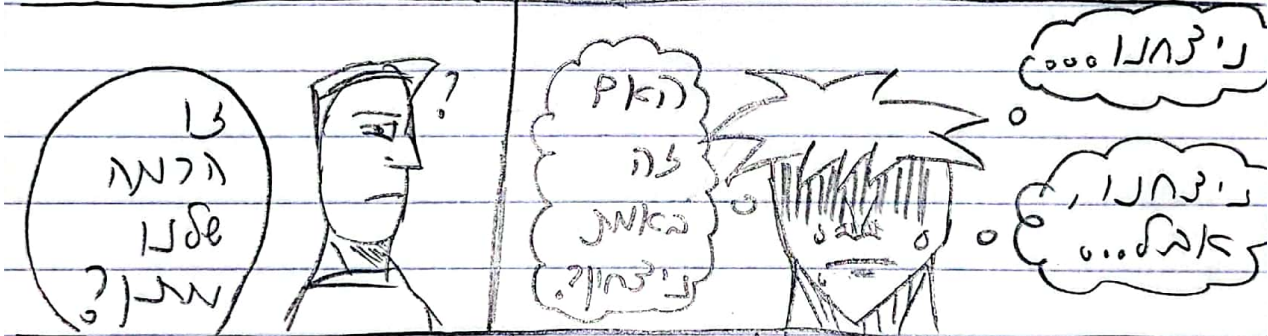 ניצחנו...
ניצחנו,
אבל...
האם
זה
באמת
ניצחון?
?
זו
הרמה
שלנו
מתן?